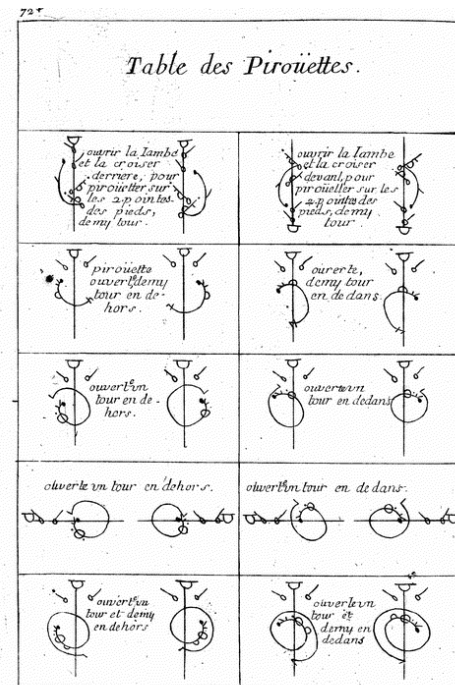 72+
Table des Piroüettes.
ouvrir la Iambe
et la croiser
derriere, pour
piroüetter sur
les 2. pointes
des pieds,
demy tour.
ouvrir la Iambe
et la croiser
devant, pour
piroüetter sur les
2. pointes des
pieds, demy
tour
piroüette
ouverte, demy
tour en de-
hors.
ouverte,
demy tour
en dedans.
ouverte un
tour en de-
hors.
ouverte un
tour en dedans
ouverte un tour en dehors.
ouverte un tour en dedans.
ouverte un
tour et demy
en dehors
ouverte un
tour et
demy en
dedans